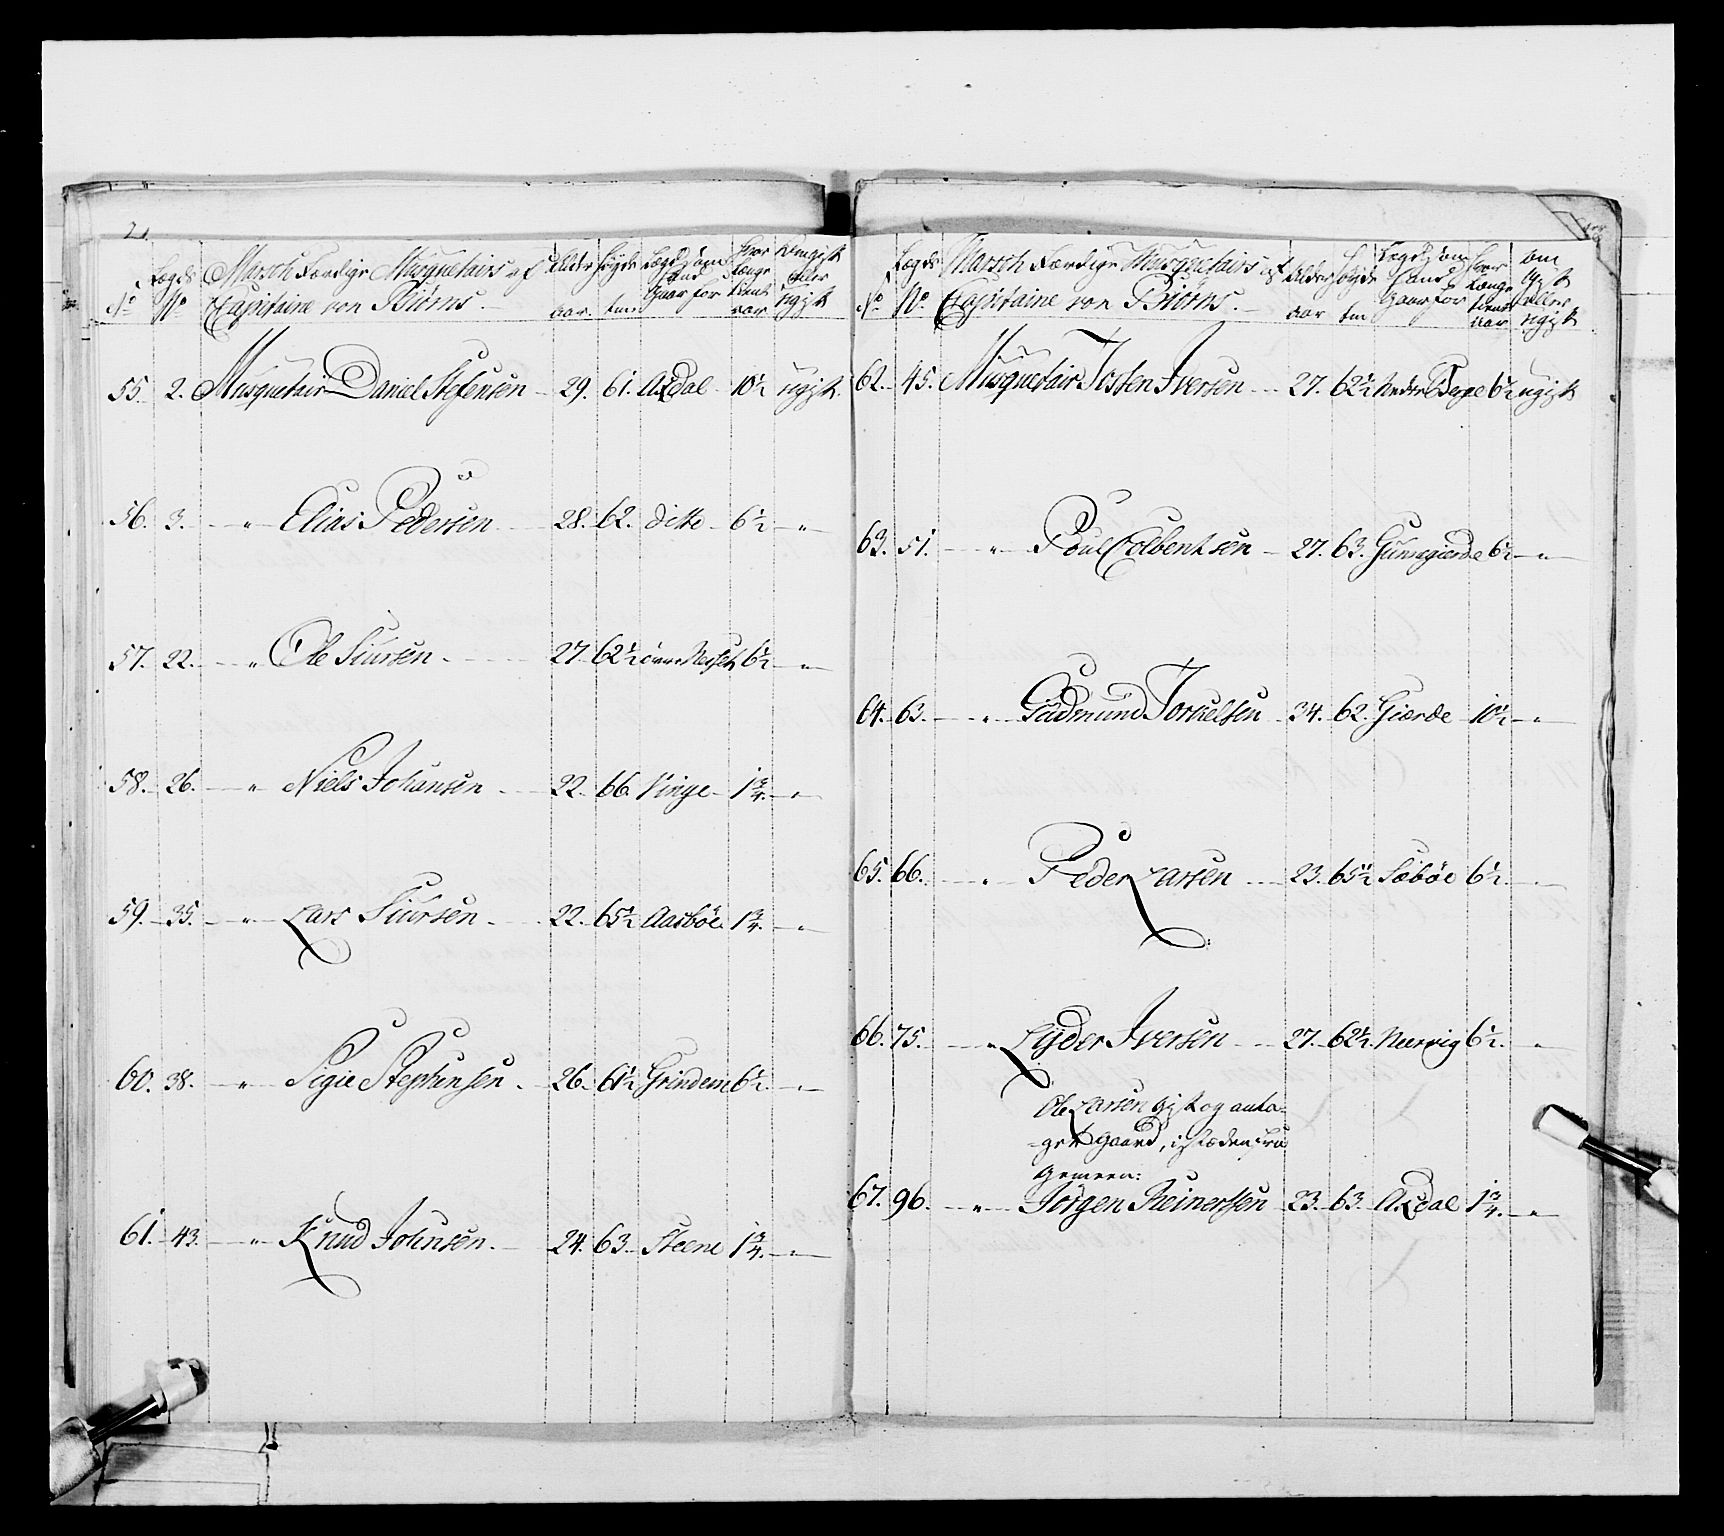 2.
No Lægds No Marsch Færdige Musquetairs af Capitaine von Biörns. Alder aar. Høyde tm. Lægd som Hand Gaar for Hvor Længe tient aar. Om gift eller ugift
55. 2. Musquetair Daniel Stefensen 29. 61. Axdal 10½ ugift
56. 3. " Elias Pedersen 28. 62. ditto 6½ "
57. 22. " Ole Siursen 27. 62½ Nesset 6½ "
58. 26. " Niels Johansen 22. 66. Vinge 1¾. "
59. 35. " Lars Siursen 22. 65½ Aasböe 1¾. "
60. 38. " Stephensen 26. 61½ Grindem 6½. "
61. 43. " Knud Johnsen. 24. 63. Steene 1¾. "
No Lægds No Marsch Færdige Musquetairs af Capitaine von Biörns. Alder aar Høyde tm Lægd som Hand Gaar for Hvor Længe tient aar om Gift eller ugift
62. 45. Musquetair Iversen 27. 62½ Neder Berge 6½ ugift
63. 51. " Poul Colbentsen 27. 63. 6½ "
64. 63. " Gudmund Torkelsen 34. 62. Gierde 10½ "
65. 66. " Peder Larsen 23. 65½ Sæböe 6½. "
66. 75. " Lyder Iversen 27. 62½ Nervig 6½. "
Ole Larsen gift og anta-
get gaard, i stæden fra
Gemeen:
67. 96. " Jörgen Reinertsen 23. 63. Axdal 1¾. "